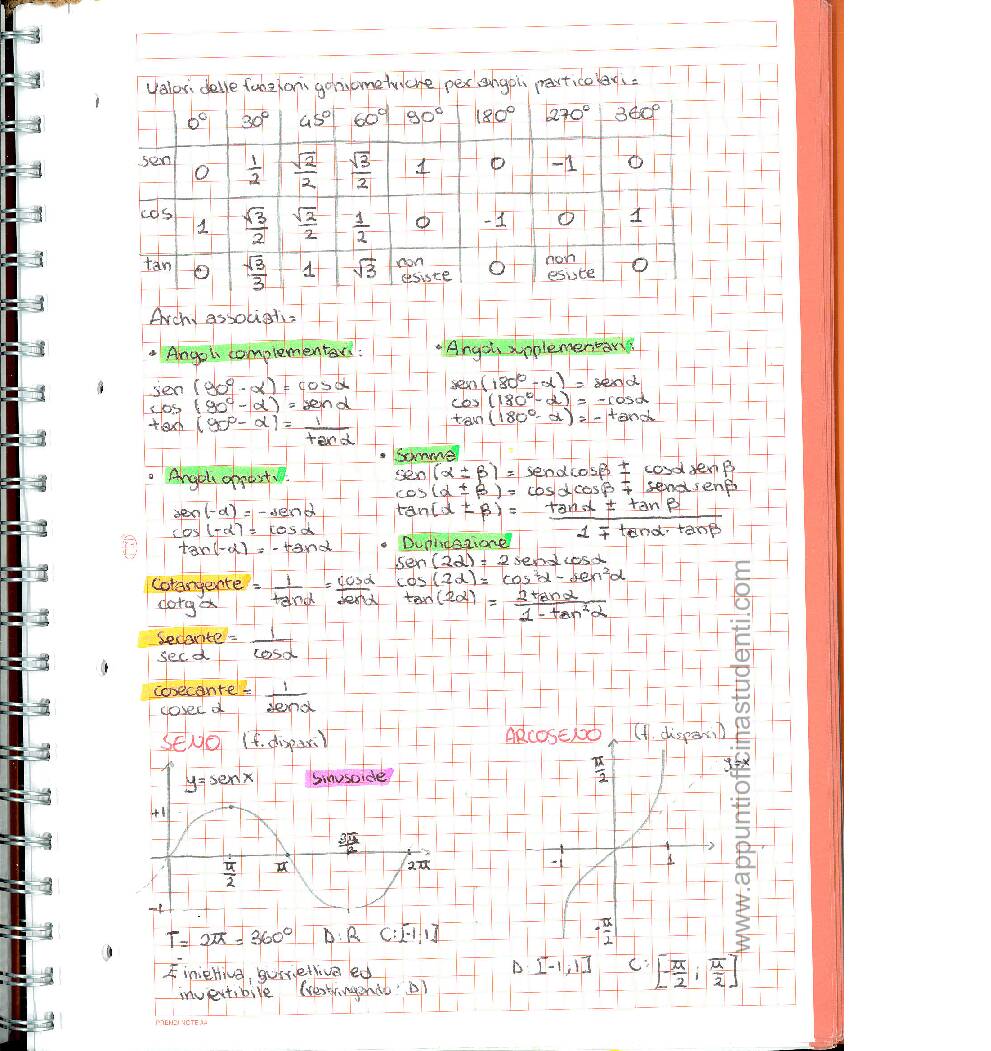 Valori delle funzioni goniometriche per angoli particolari:
0° 30° 45° 60° 90° 180° 270° 360°
sen 0 1/2 √2/2 √3/2 1 0 -1 0
cos 1 √3/2 √2/2 1/2 0 -1 0 1
tan 0 √3/3 1 √3 non esiste 0 non esiste 0
Archi associati:
• Angoli complementari:
sen (90° - α) = cosα
cos (90° - α) = senα
tan (90° - α) = 1/tanα
• Angoli supplementari:
sen(180° - α) = senα
cos (180° - α) = -cosα
tan (180° - α) = - tanα
• Angoli opposti:
sen(-α) = -senα
cos(-α) = cosα
tan(-α) = -tanα
• Somma
sen (α ± β) = senαcosβ ± cosαsenβ
cos (α ± β) = cosαcosβ ∓ senαsenβ
tan(α ± β) = tanα ± tanβ / 1 ∓ tanα · tanβ
• Duplicazione
sen (2α) = 2senαcosα
cos (2α) = cos²α - sen²α
tan (2α) = 2tanα / 1 - tan²α
Cotangente = 1/tanα = cosα/senα
cotgα
Secante = 1/cosα
sec α
cosecante = 1/senα
cosec α
SENO (f. dispari)
y = sen x Sinusoide
+1
π/2 π 3π/2 2π
-1
T = 2π = 360° D: R C: [-1;1]
È iniettiva, suriettiva ed
invertibile (restringendo D)
ARCOSENO (f. dispari)
π/2
y=x
-1 1
-π/2
D: [-1;1] C: [-π/2; π/2]
www.appuntiofficinastudenti.com
PRENDI NOTE A4